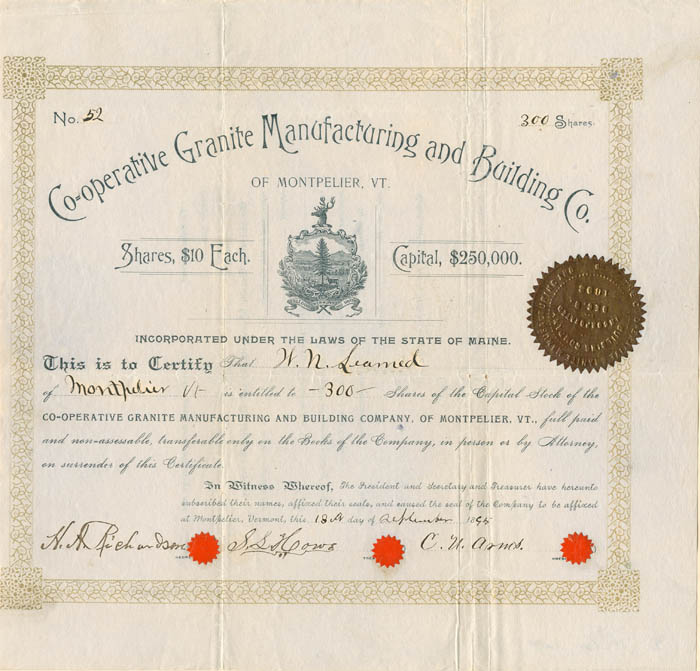 No. 52
300 Shares.
Co-operative Granite Manufacturing and Building Co.
OF MONTPELIER, VT.
Shares, $10 Each.
Capital, $250,000.
INCORPORATED UNDER THE LAWS OF THE STATE OF MAINE.
This is to Certify That W. N. Learned
of Montpelier Vt is entitled to -300- Shares of the Capital Stock of the
CO-OPERATIVE GRANITE MANUFACTURING AND BUILDING COMPANY, OF MONTPELIER, VT., full paid
and non-assessable, transferable only on the Books of the Company, in person or by Attorney,
on surrender of this Certificate.
In Witness Whereof, The President and Secretary and Treasurer have hereunto
subscribed their names, affixed their seals, and caused the seal of the Company to be affixed
at Montpelier, Vermont, this 18th day of September 1895
H. A. Richardson
C. U. Arms.